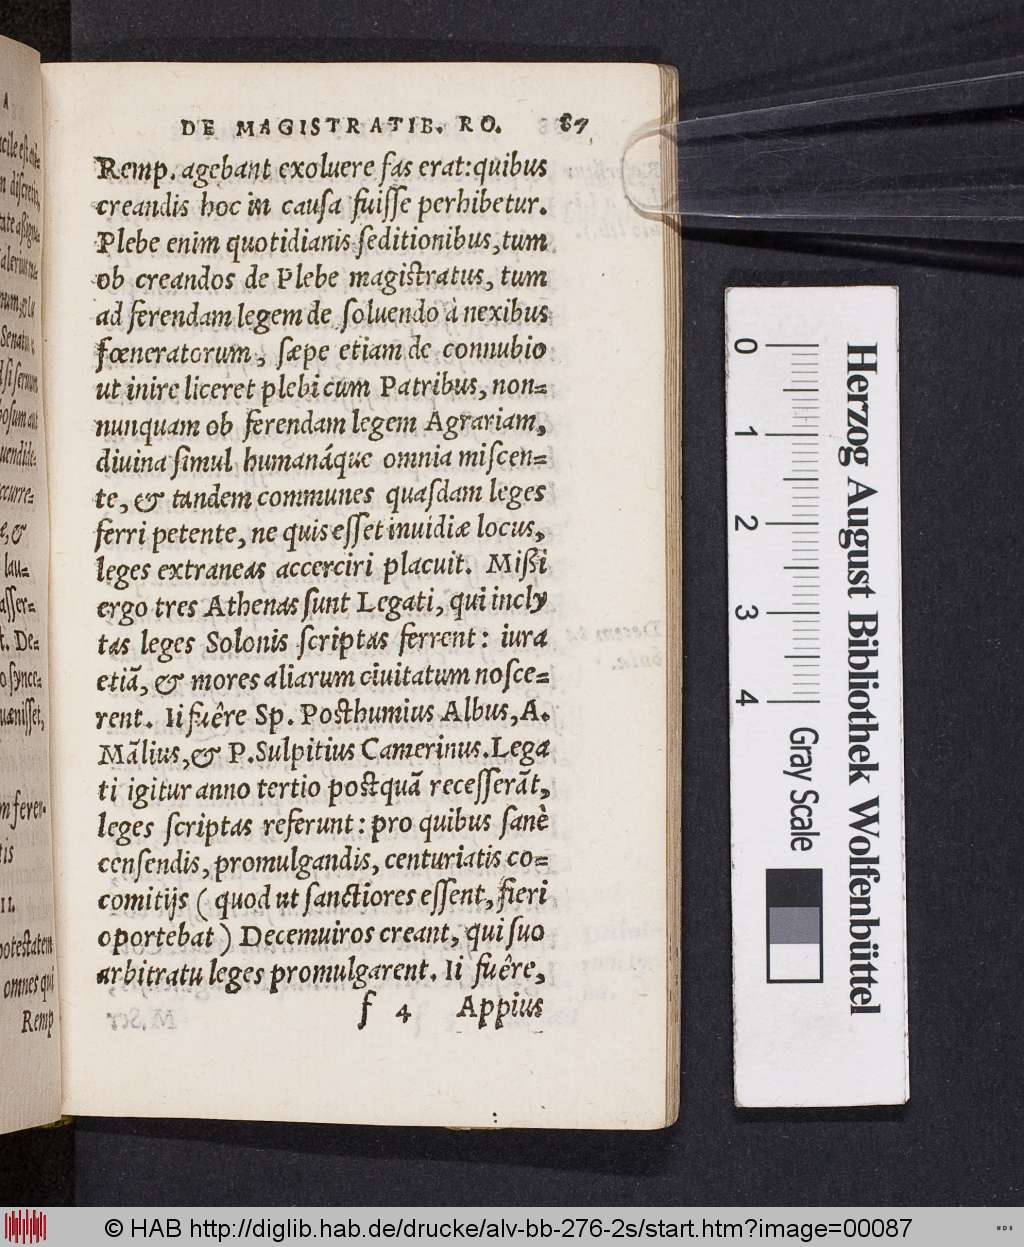 DE MAGISTRATIB. RO. 87
Remp. agebant exoluere fas erat: quibus
creandis hoc in causa fuisse perhibetur.
Plebe enim quotidianis seditionibus, tum
ob creandos de Plebe magistratus, tum
ad ferendam legem de soluendo à nexibus
fœneratorum, sæpe etiam de connubio
ut inire liceret plebi cum Patribus, non=
nunquam ob ferendam legem Agrariam,
diuina simul humanáque omnia miscen=
te, & tandem communes quasdam leges
ferri petente, ne quis esset inuidiæ locus,
leges extraneas accerciri placuit. Mißi
ergo tres Athenas sunt Legati, qui incly
tas leges Solonis scriptas ferrent: iura
etiã, & mores aliarum ciuitatum nosce=
rent. Ii fuêre Sp. Posthumius Albus, A.
Mãlius, & P. Sulpitius Camerinus. Lega
ti igitur anno tertio postquã recesserãt,
leges scriptas referunt: pro quibus sanè
censendis, promulgandis, centuriatis co=
comitijs ( quod ut sanctiores essent, fieri
oportebat ) Decemuiros creant, qui suo
arbitratu leges promulgarent. Ii fuêre,
f 4 Appius
Remp
0 1 2 3 4
Gray Scale
Herzog August Bibliothek Wolfenbüttel
© HAB http://diglib.hab.de/drucke/alv-bb-276-2s/start.htm?image=00087